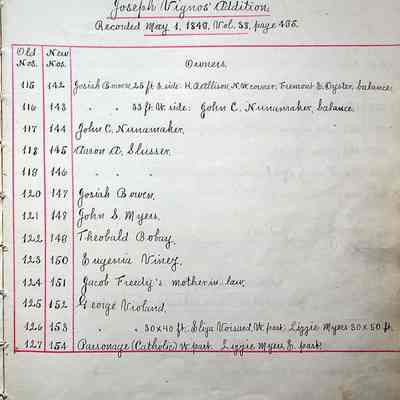 Joseph Vignos' Addition.
Recorded May 1, 1849, Vol. 38, page 465.
Old Nos. New Nos. Owners.
115 142 Josiah Bowen 25 ft S. side: H. Allison, N.W. corner: Fremont D. Oyster, balance.
116 143 " " 33 ft W. side: John C. Nunamaker, balance.
117 144 John C. Nunamaker.
118 145 Aaron A. Slusser.
119 146 " " "
120 147 Josiah Bowen.
121 148 John S. Myers.
122 149 Theobald Bobay.
123 150 Eugenia Viney.
124 151 Jacob Freedy's mother in law.
125 152 George Violand.
126 153 " " 30x40 ft. Eliza Voisard, W. part, Lizzie Myers 30x50 ft.
127 154 Parsonage (Catholic) W. part. Lizzie Myers E. part.